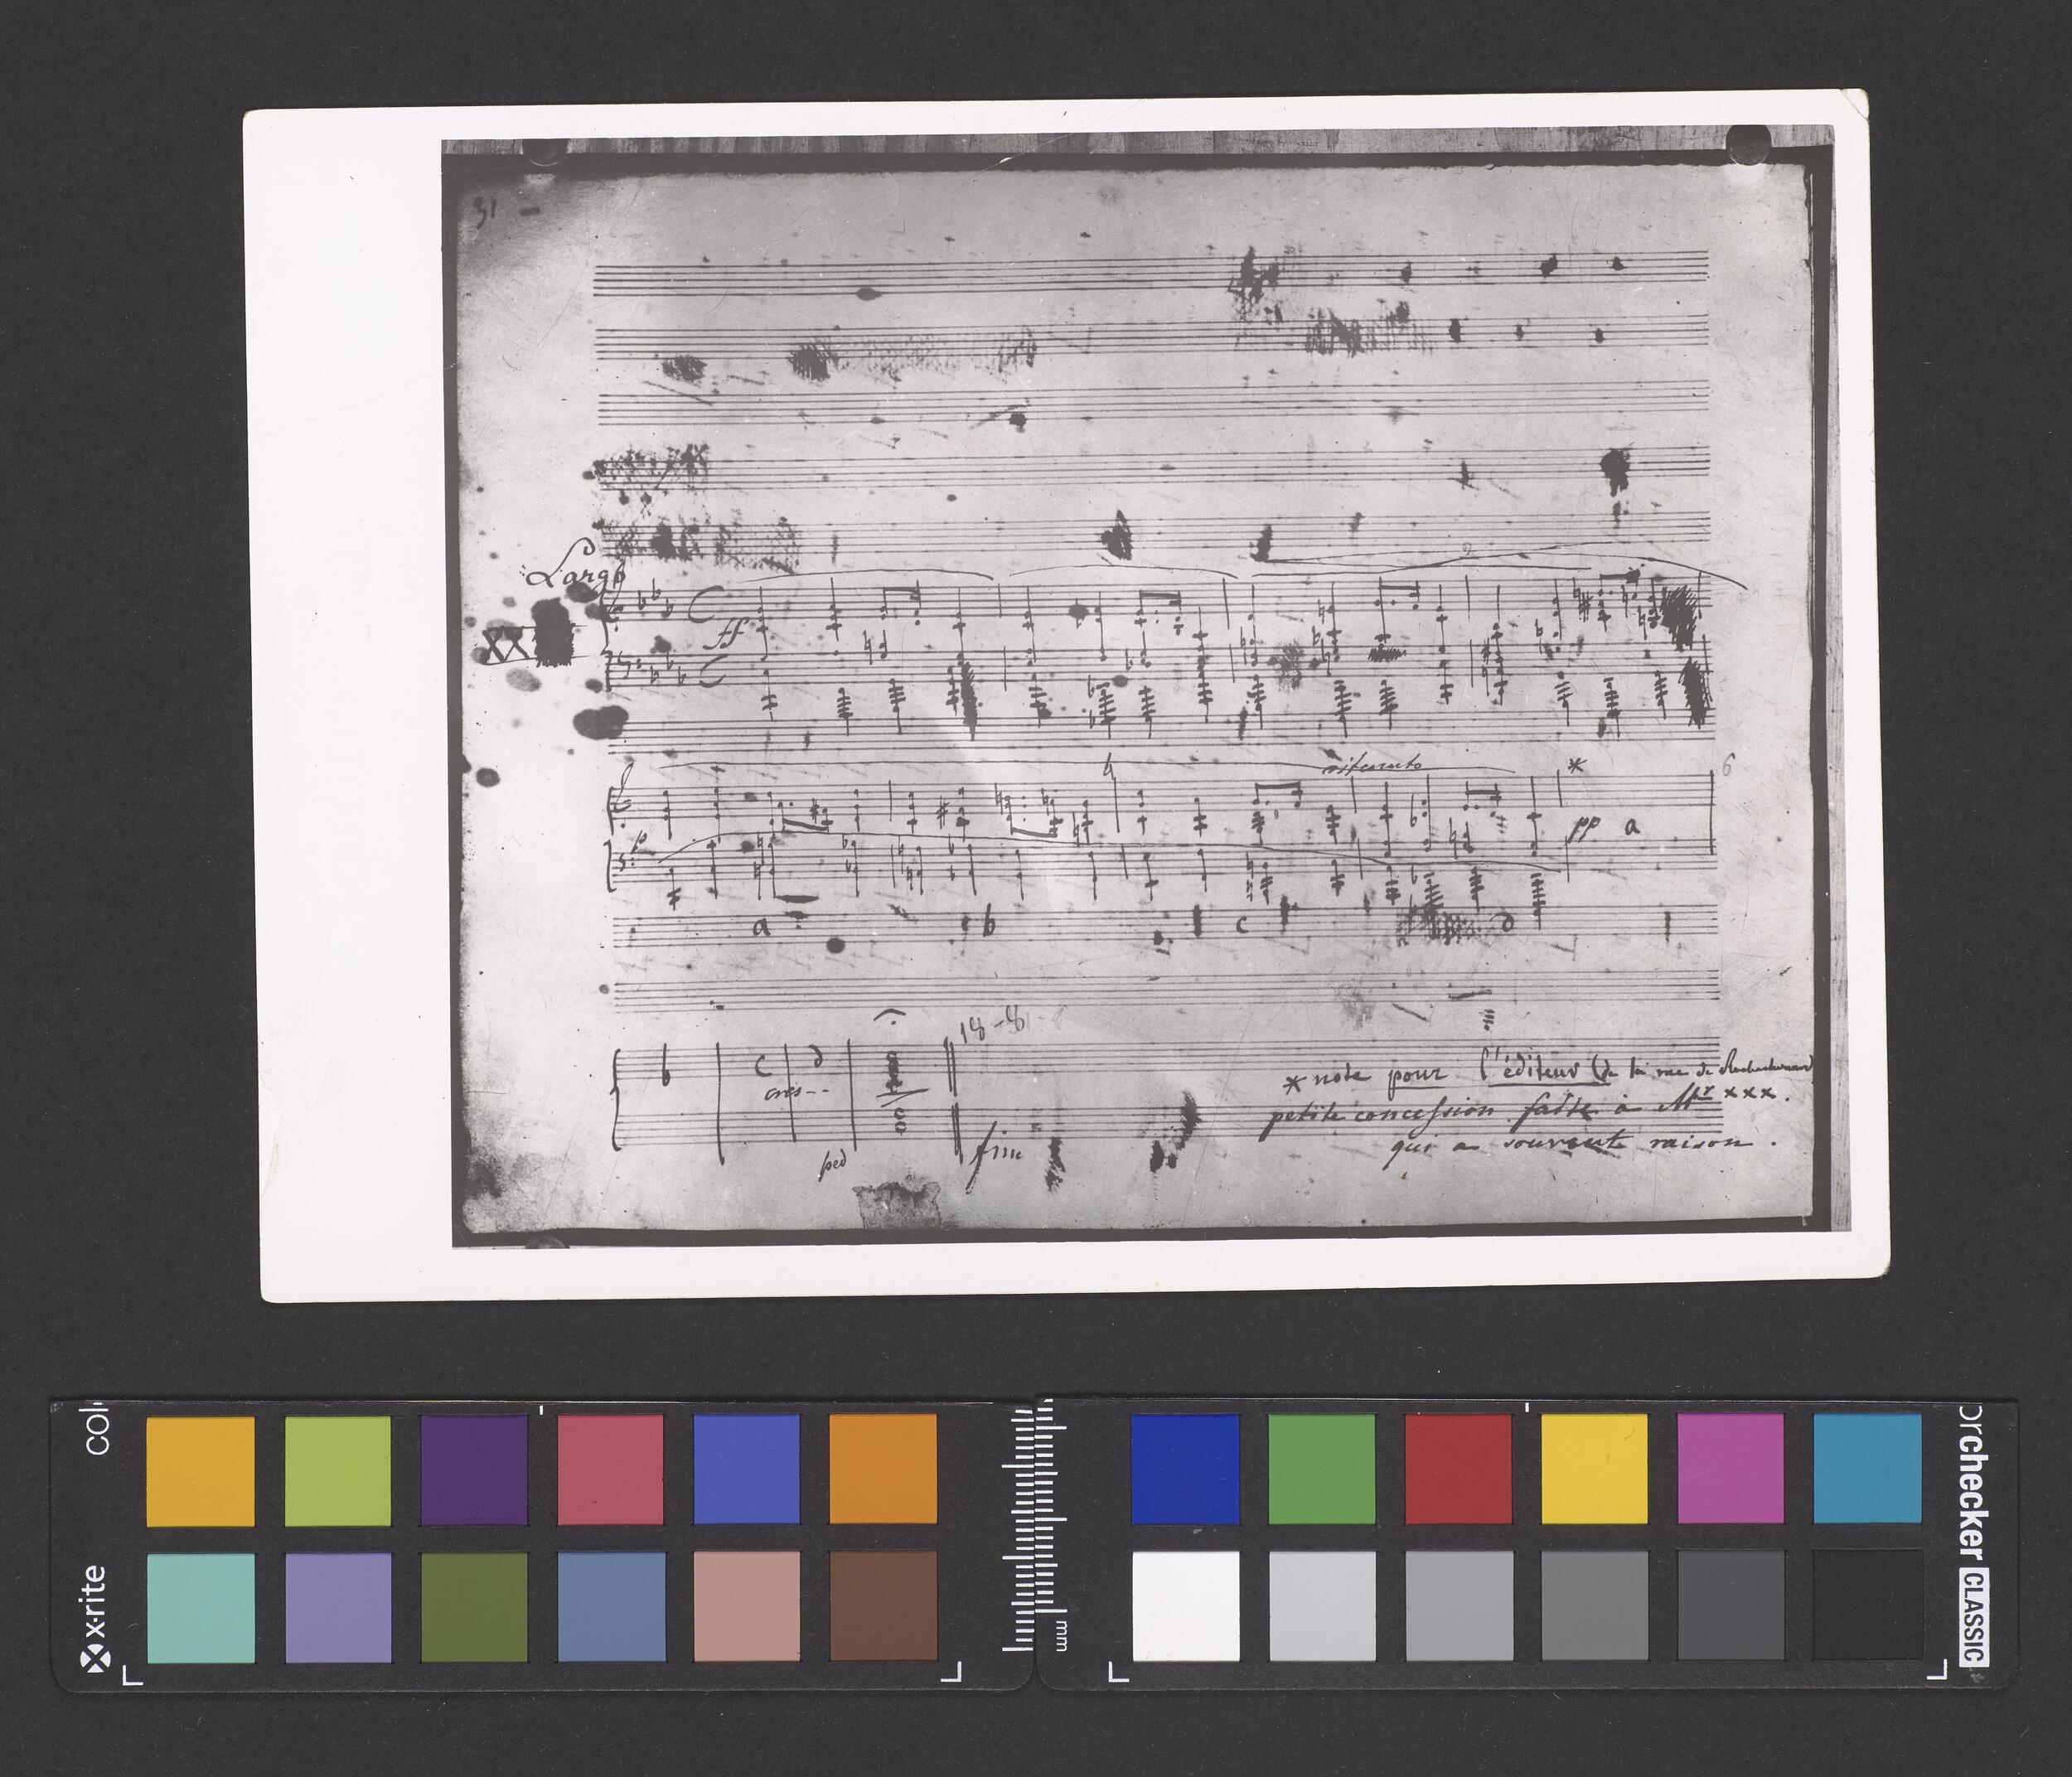 31 -
Largo
C
ff
XX
C
ritenuto
*
6
p
pp a
a b c d
18-81-8
b c d
cres--
* note pour l'éditeur (de la rue de Rochechouard)
petite concession faite à Mr xxx.
qui a souvent raison.
ped
fine
colo
x-rite
mm
orchecker CLASSIC